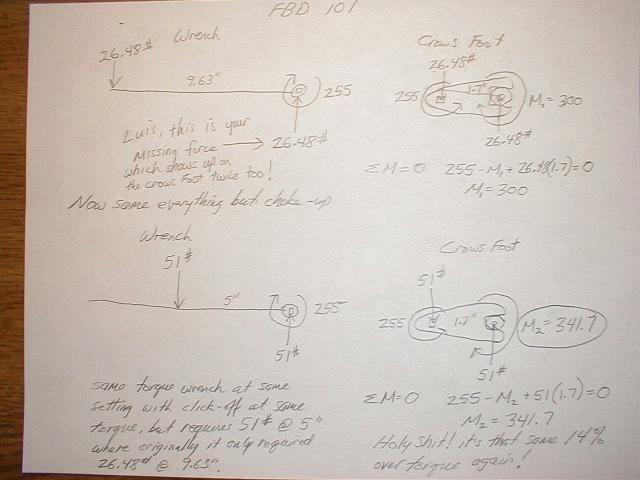 FBD 101
Wrench
26.48#
9.63"
255
26.48#
Luis, this is your
missing force
which shows up on
the crows foot twice too!
Crows Foot
26.48#
255
1.7"
M₁ = 300
26.48#
ΣM=0 255 - M₁ + 26.48(1.7) = 0
M₁ = 300
Now same everything but choke-up
Wrench
51#
5"
255
51#
Crows Foot
51#
255
1.7"
M₂ = 341.7
51#
same torque wrench at same
setting with click-off at same
torque, but requires 51# @ 5"
where originally it only required
26.48# @ 9.63".
ΣM=0 255 - M₂ + 51(1.7) = 0
M₂ = 341.7
Holy shit! it's that same 14%
over torque again!